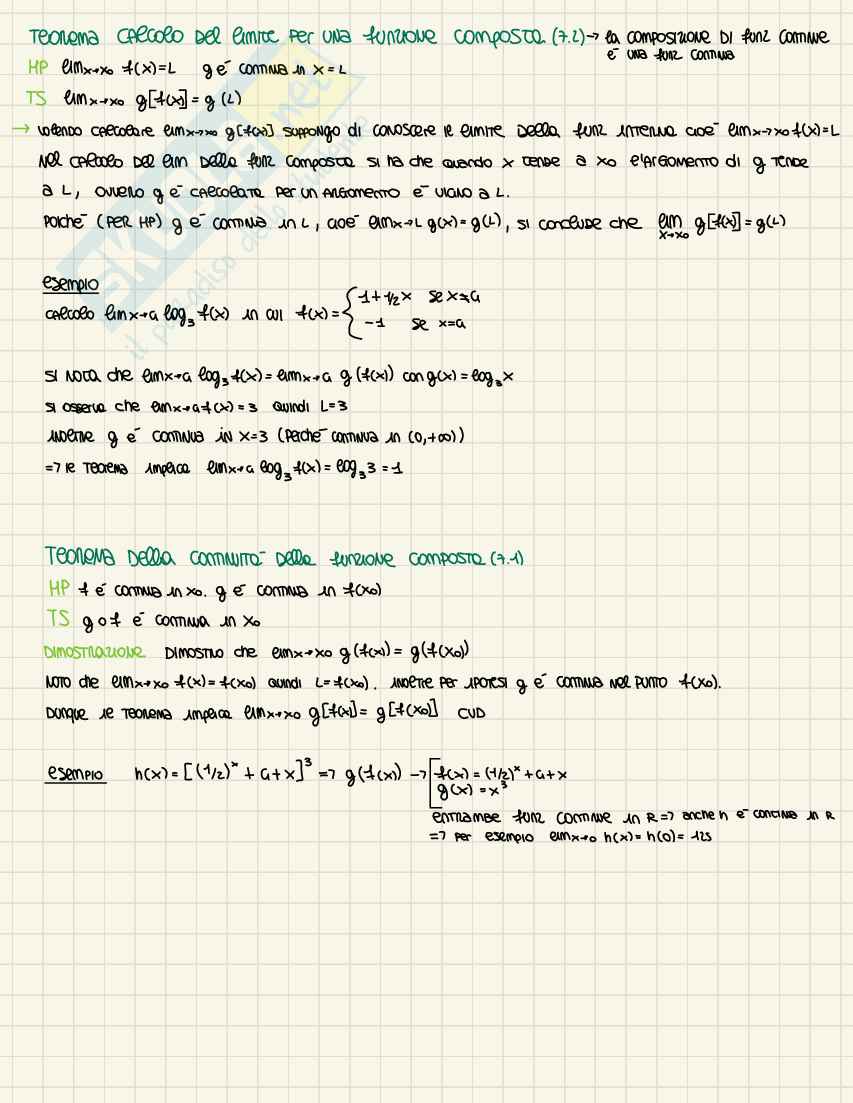 TEOREMA CALCOLO DEL LIMITE PER UNA FUNZIONE COMPOSTA (7.2) → LA COMPOSIZIONE DI FUNZ CONTINUE
E' UNA FUNZ CONTINUA
HP lim x→x0 f(x)=L g e' CONTINUA in x=L
TS lim x→x0 g[f(x)]=g(L)
→ VOLENDO CALCOLARE lim x→x0 g[f(x)] SUPPONGO DI CONOSCERE IL LIMITE DELLA FUNZ INTERNA CIOE' lim x→x0 f(x)=L
NEL CALCOLO DEL lim DELLA FUNZ COMPOSTA SI HA CHE QUANDO x TENDE A x0 L'ARGOMENTO DI g TENDE
A L, OVVERO g E' CALCOLATA PER UN ARGOMENTO E' VICINO A L.
POICHE' (PER HP) g E' CONTINUA IN L, CIOE' lim x→L g(x)=g(L), SI CONCLUDE CHE lim x→x0 g[f(x)]=g(L)
ESEMPIO
CALCOLO lim x→a log3 f(x) IN CUI f(x)= { 1+1/2x SE x≠a
-1 SE x=a
SI NOTA CHE lim x→a log3 f(x)=lim x→a g(f(x)) CON g(x)=log3 x
SI OSSERVA CHE lim x→a f(x)=3 QUINDI L=3
INOLTRE g E' CONTINUA IN x=3 (PERCHE' CONTINUA IN (0,+∞))
=> IL TEOREMA IMPLICA lim x→a log3 f(x)=log3 3=1
TEOREMA DELLA CONTINUITA' DELLA FUNZIONE COMPOSTA (7.1)
HP f E' CONTINUA IN x0. g E' CONTINUA IN f(x0)
TS g o f E' CONTINUA IN x0
DIMOSTRAZIONE DIMOSTRO CHE lim x→x0 g(f(x))=g(f(x0))
NOTO CHE lim x→x0 f(x)=f(x0) QUINDI L=f(x0). INOLTRE PER IPOTESI g E' CONTINUA NEL PUNTO f(x0).
DUNQUE IL TEOREMA IMPLICA lim x→x0 g[f(x)]=g[f(x0)] CVD
ESEMPIO h(x)=[(1/2)^x+a+x]^3 => g(f(x)) → f(x)=(1/2)^x+a+x
g(x)=x^3
ENTRAMBE FUNZ CONTINUE IN R => ANCHE h E' CONTINUA IN R
=> PER ESEMPIO lim x→0 h(x)=h(0)=125
SKUOLA.net
il paradiso dello studente